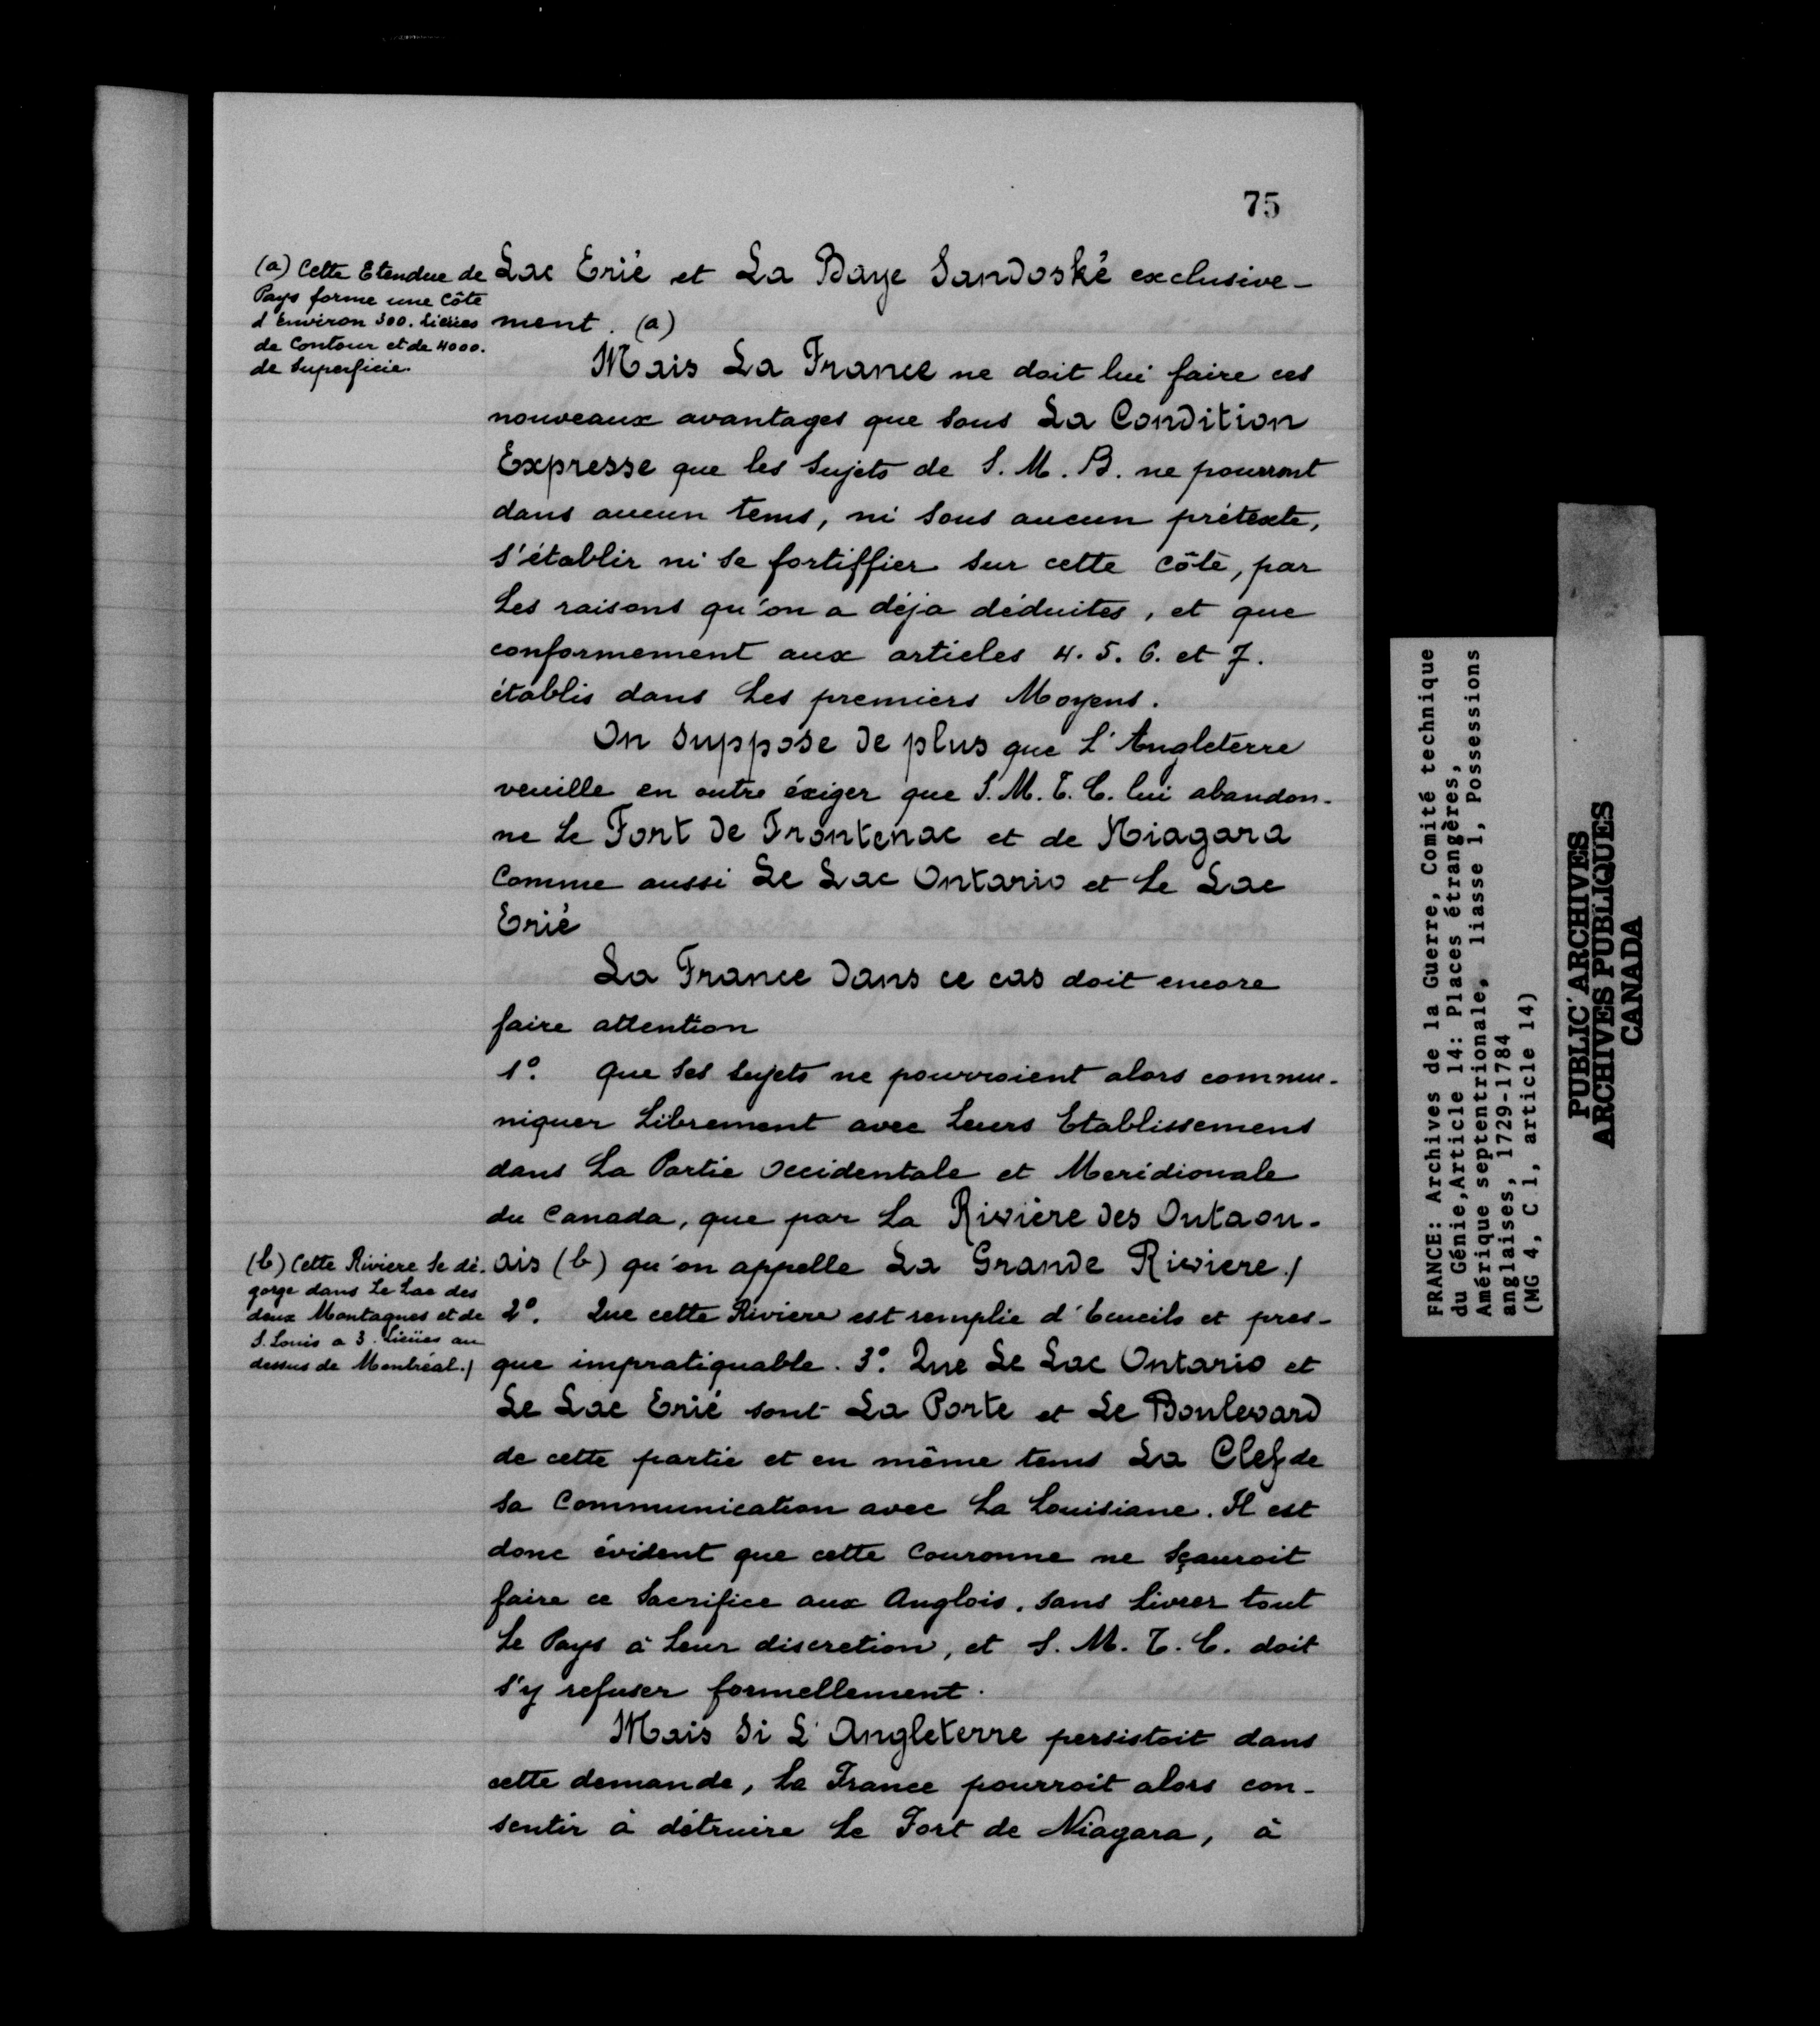 75
(a) Cette Etendue de
Pays forme une Côte
d'Environ 300. Lieües
de Contour et de 4000.
de Superficie.
Lac Erié et La Baye Sandoské exclusive-
ment. (a)
Mais La France ne doit lui faire ces
nouveaux avantages que sous La Condition
Expresse que les Sujets de S. M. B. ne pourront
dans aucun tems, ni sous aucun prétexte,
s'établir ni se fortiffier sur cette Côte, par
Les raisons qu'on a déja déduites, et que
conformement aux articles 4. 5. 6. et 7.
établis dans Les premiers Moyens.
On Suppose de plus que L'Angleterre
veuille en outre éxiger que S. M. T. C. lui abandon-
ne Le Fort de Frontenac et de Niagara
Comme aussi Le Lac Ontario et Le Lac
Erié
La France dans ce cas doit encore
faire attention
1º. Que ses sujets ne pourroient alors commu-
niquer Librement avec Leurs Etablissemens
dans La Partie Occidentale et Meridionale
du Canada, que par La Rivière des Outaou-
ais (b) qu'on appelle La Grande Riviere./
(b) Cette Riviere se dé-
gorge dans Le Lac des
deux Montagnes et de
S. Louis a 3. Lieües au
dessus de Montréal./
2º. Que cette Riviere est remplie d'Ecueils et pres-
que impratiquable. 3º. Que Le Lac Ontario et
Le Lac Erié sont La Porte et Le Boulevard
de cette partie et en même tems La Clef de
sa Communication avec La Louisiane. Il est
donc évident que cette Couronne ne sçauroit
faire ce Sacrifice aux Anglois, sans Livrer tout
Le Pays à Leur discretion, et S. M. T. C. doit
s'y refuser formellement.
Mais Si L'Angleterre persistoit dans
cette demande, La France pourroit alors con-
sentir à détruire Le Fort de Niagara, à
FRANCE: Archives de la Guerre, Comité technique
du Génie, Article 14: Places étrangères,
Amérique septentrionale, liasse 1, Possessions
anglaises, 1729-1784
(MG 4, C 1, article 14)
PUBLIC ARCHIVES
ARCHIVES PUBLIQUES
CANADA